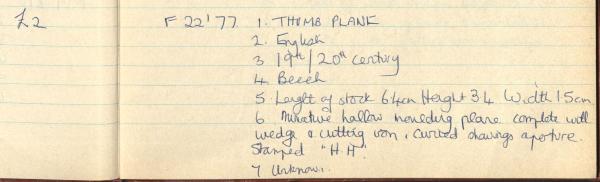 £2 F 22'77 1. THUMB PLANE
2. English
3 19th/20th century
4. Beech
5 Lenght of stock 6.4cm Height 3.4 Width 1.5cm
6 Miniature hallow moulding plane complete with
wedge & cutting iron, curved shavings aperture.
Stamped "H.H".
7 Unknown.